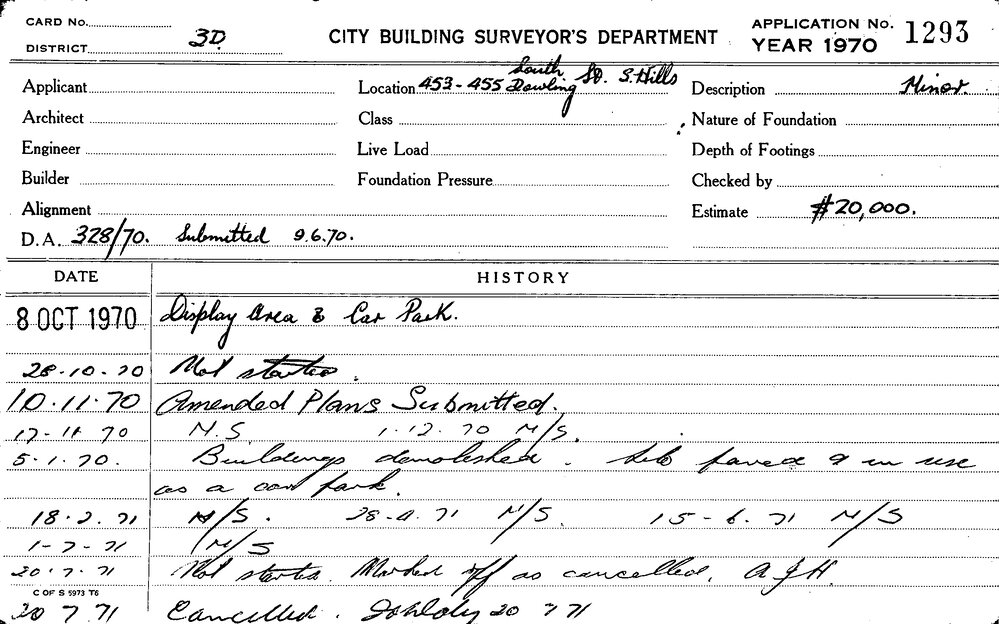 CARD No.
DISTRICT 3D.
CITY BUILDING SURVEYOR'S DEPARTMENT
APPLICATION No. 1293
YEAR 1970
Applicant
Location 453-455 South Dowling St. S. Hills
Description Minor.
Architect
Class
Nature of Foundation
Engineer
Live Load
Depth of Footings
Builder
Foundation Pressure
Checked by
Alignment
Estimate $20,000.
D.A. 328/70. Submitted 9.6.70.
DATE HISTORY
8 OCT 1970 Display Area & Car Park.
28.10.70 Not started.
10.11.70 Amended Plans Submitted.
17-11 70 N.S. 1.12.70 N/S.
5.1.70. Buildings demolished. Site paved & in use
as a car park.
18.2.71 N/S. 28-4.71 N/S. 15-6.71 N/S
1-7-71 N/S
20.7.71 Not started. Marked off as cancelled. A.J.H.
C OF S 5973 T6
20 7 71 Cancelled. 20 7 71